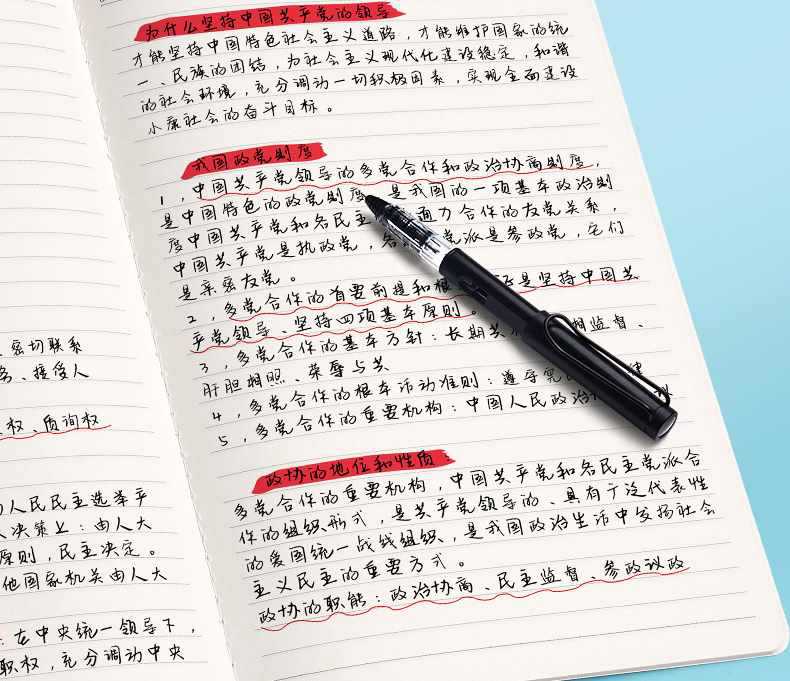 密切联系
、接受人
权、质询权
人民民主选举产
决策上：由人大
原则，民主决定。
他国家机关由人大
：在中央统一领导下，
职权，充分调动中央
为什么坚持中国共产党的领导
才能坚持中国特色社会主义道路，才能维护国家的统
一、民族的团结，为社会主义现代化建设稳定，和谐
的社会环境，充分调动一切积极因素，实现全面建设
小康社会的奋斗目标。
我国政党制度
1，中国共产党领导的多党合作和政治协商制度，
是中国特色的政党制度，是我国的一项基本政治制
度中国共产党和各民主 通力合作的友党关系，
中国共产党是执政党，各 党派是参政党，它们
是亲密友党。
2，多党合作的首要前提和根 证是坚持中国共
产党领导、坚持四项基本原则。
3，多党合作的基本方针：长期共 相监督、
肝胆相照、荣辱与共
4，多党合作的根本活动准则：遵守宪 律
5，多党合作的重要机构：中国人民政治 议
政协的地位和性质
多党合作的重要机构，中国共产党和各民主党派合
作的组织形式，是共产党领导的、具有广泛代表性
的爱国统一战线组织，是我国政治生活中发扬社会
主义民主的重要方式。
政协的职能：政治协商、民主监督、参政议政